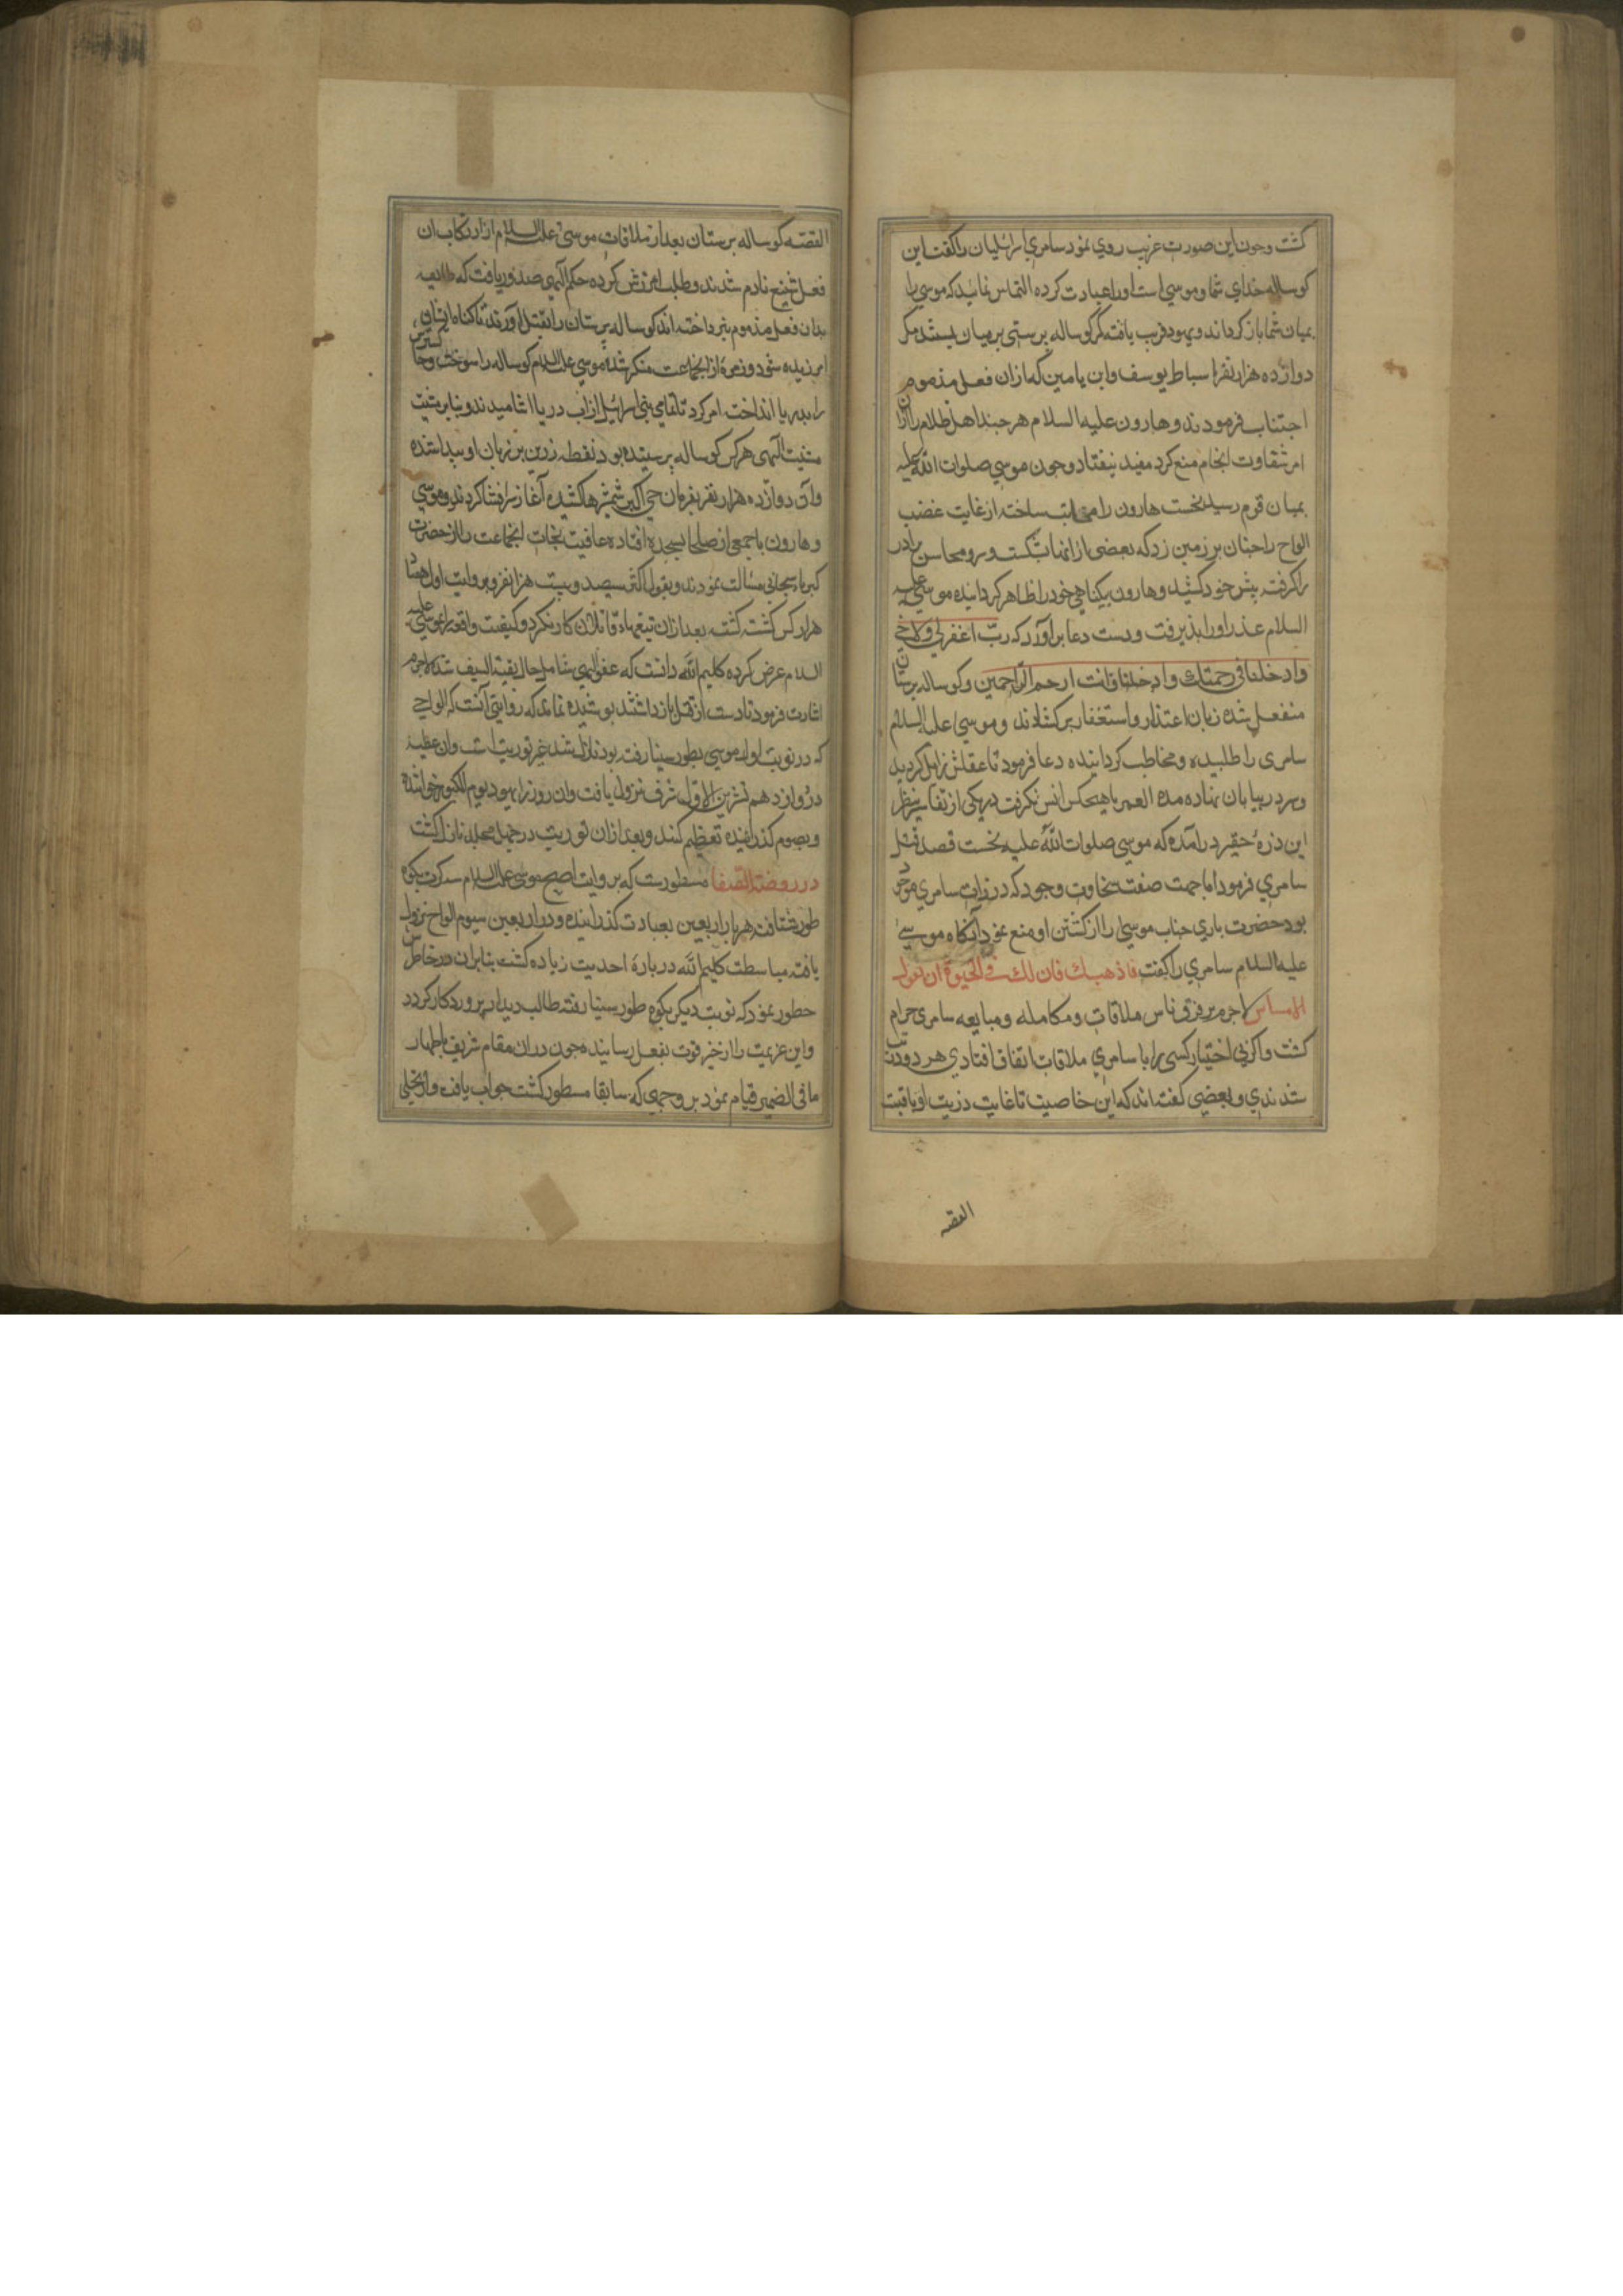 کشت وجون این صورت غریب روي نمود سامري اسرائیلیان را کفت این
کوساله خداي شما و موسي است اورا عبادت کرده التماس نمایید که موسي را
بمیان شما باز کرداند و یهود فریب یافته کمر کوساله پرستی بر میان بستند مکر
دوازده هزار نفر از اسباط یوسف وابن یامین که ازان فعل مذموم
اجتناب فرمودند و هارون علیه السلام هر جند اهل ظلام را ازان
امر شقاوت انجام منع کرد مفید نیفتاد و جون موسي صلوات الله علیه
بمیان قوم رسید نخست هارون را معاتب ساخته از غایت غضب
الواح را جنان بر زمین زد که بعضی از انها بشکست و سر و محاسن برادر
را کرفته پیش خود کشید و هارون بیکناهي خود را ظاهر کردانیده موسي علیه
السلام عذر اورا پذیرفت و دست دعا بر اورد که ربّ اغفر لي ولاخي
وادخلنا في رحمتك وانت ارحم الراحمین و کوساله پرستان
منفعل شده زبان اعتذار واستغفار برکشادند و موسي علیه السلام
سامری را طلبیده و مخاطب کردانیده دعا فرمود تا عقلش زایل کردید
و سر در بیابان نهاده مدة العمر با هیجکس انس نکرفت در یکی از تفاسیر بنظر
این ذرهٔ حقیر درآمده که موسی صلوات الله علیه نخست قصد قتل
سامري فرمود اما جهت صفت سخاوت وجود که در ذات سامري موجود
بود حضرت باري جناب موسي را از کشتن او منع نمود آنکاه موسي
علیه السلام سامري را کفت فاذهب فان لك في الحیوة ان تقول
لامساس لاجرم بر فرق ناس ملاقات و مکامله و مبایعه سامری حرام
کشت واکر بی اختیار کسی را با سامري ملاقات اتفاق افتادي هر دو را تب
شدندي و بعضي کفته اند که این خاصیت تا غایت در ذریت او باقیست
القصه
القصه کوساله پرستان بعد از ملاقات موسی علیه السلام از ارتکاب ان
فعل شنیع نادم شدند و طلب امرزش کرده حکم الهي صدور یافت که طایفه
بدان فعل مذموم نپرداخته اند کوساله پرستان را بقتل اورند تا کناه ایشان
امرزیده شود و زمرهٔ از انجماعت منکر شده موسي علیه السلام کوساله را سوخت و خاکسترش
را بدریا انداخت امر کرد تا تمامي بني اسرائیل از اب دریا اشامیدند و بنا بر
مشیت الهی هر کس کوساله پرستیده بود نقطه زرین بر زبان او پیدا شده
وآن دوازده هزار نفر بفرمان حي اکبر شمشیرها کشیده آغاز سرافشا کردند و موسي
و هارون با جمعی از صلحا بسجده افتاده عافیت نجات انجماعت را از حضرت
کبریا سبحانی مسألت نمودند و بقول اکثر سیصد و بیست هزار نفر و بروایت اول هفتاد
هزار کس کشته کشت بعد ازان تیغهاء قاتلان کار نکرد و کیفیت واقعه را بموسي علیه
السلام عرض کرده کلیم الله دانست که عفو الهي شامل حال بقیة السیف شده لاجرم
اشارت فرمود تا دست از قتل باز داشتند پوشیده نماند که روایتی آنست که الواحي
که در نوبت اول موسي بطور سینا رفته بود نازل شد غیر توریت است وان عطیه
در دوازدهم تشرین الاول شرف نزول یافت وان روز را یهود یوم الکبور خوانند
و بصوم کذرانیده تعظیم کنند و بعد ازان توریت در جهل مجلد نازل کشت
در روضة الصفا مسطورست که بروایت اصح موسی علیه السلام سه کرت بکوه
طور شتافته هر بار اربعین بعبادت کذرانیده و در اربعین سیوم الواح نزول
یافته مباسطت کلیم الله در بارهٔ احدیت زیاده کشت بنابران در خاطرش
خطور نمود که نوبت دیکر بکوه طور سینا رفته طالب دیدار پروردکار کردد
واین عزیمت را از حیز قوت بفعل رسانیده جون دران مقام شریف باظهار
ما فی الضمیر قیام نمود بر وجهی که سابقا مسطور کشت جواب یافت و از تجلی